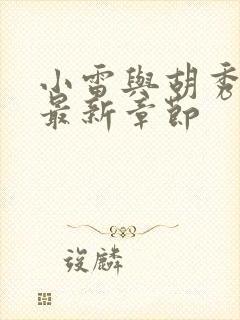 小雷與胡秀
最新章節